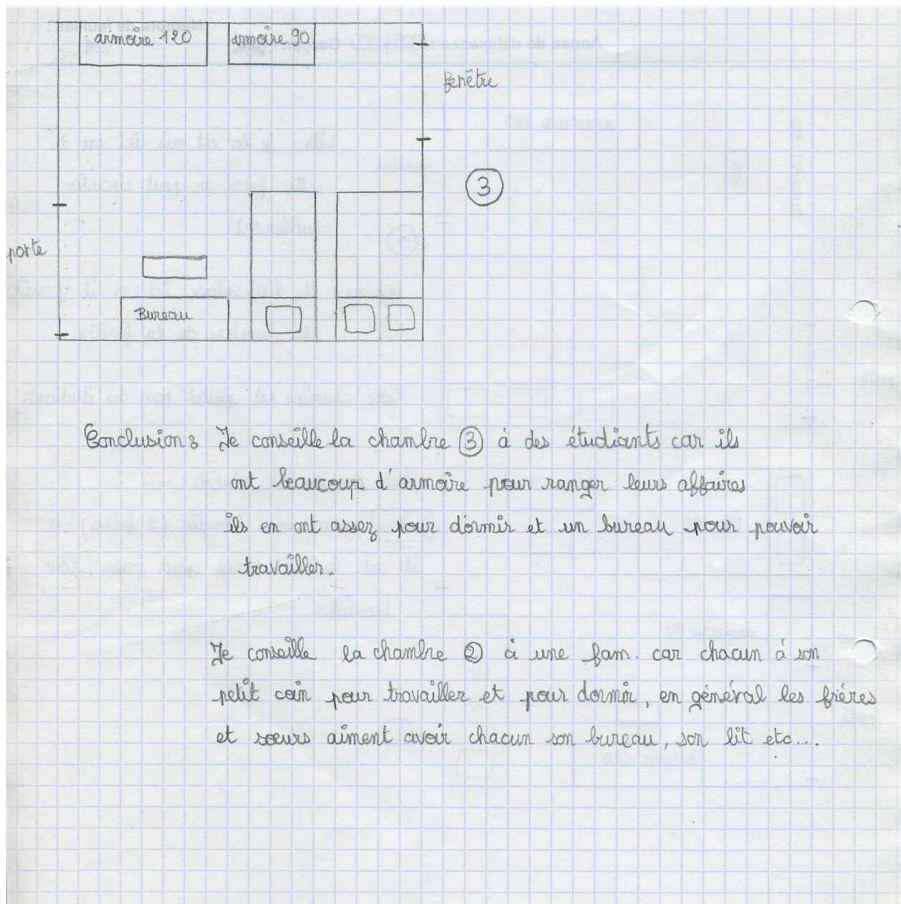 armoire 120
armoire 90
fenêtre
3
porte
Bureau
Conclusion : Je conseille la chambre ③ à des étudiants car ils
ont beaucoup d'armoire pour ranger leurs affaires
ils en ont assez pour dormir et un bureau pour pouvoir
travailler.
Je conseille la chambre ② à une fam. car chacun à son
petit coin pour travailler et pour dormir, en général les frères
et sœurs aiment avoir chacun son bureau, son lit etc....